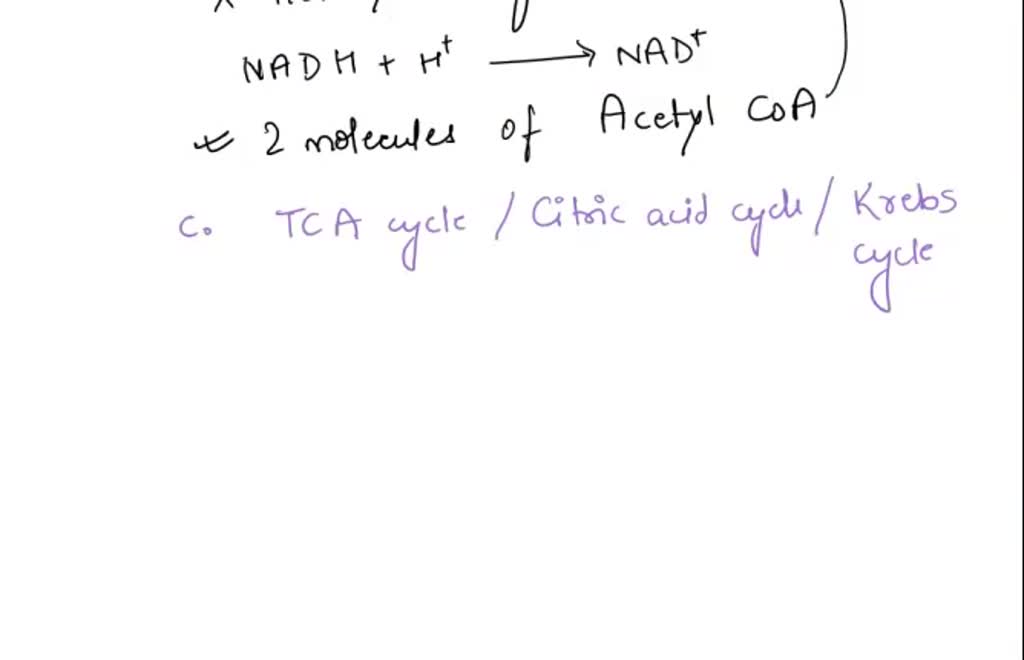 NADH + H⁺ ⟶ NAD⁺
* 2 molecules of Acetyl CoA
C. TCA cycle / Citric acid cycle / Krebs
cycle